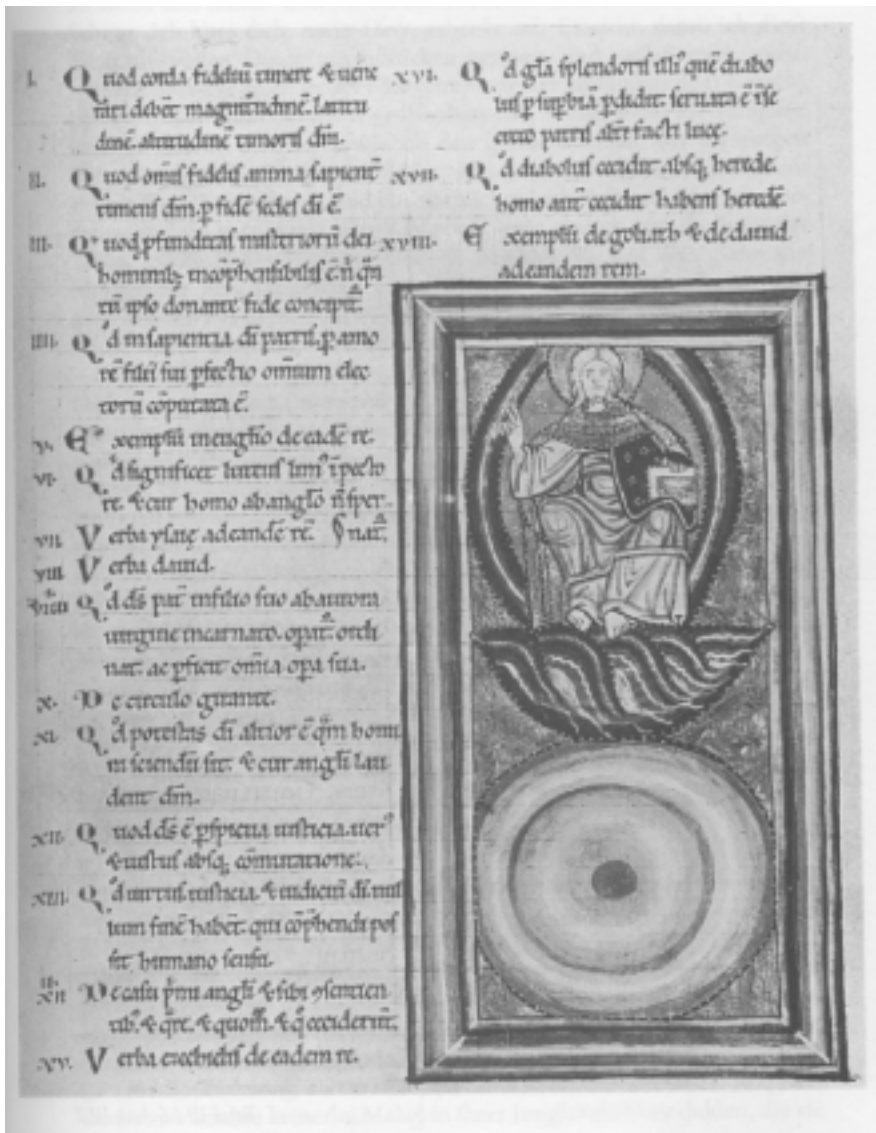 I. Quod corda fideliū timere & uene
rari debēt magnitudinē. latitu
dinē. altitudinē timoris dn̄i.
II. Quod om̄is fidelis anima sapient̄
timens dm̄. p fidē sedes di ē.
III. Quod pfunditas misteriorū dei
hominibꝫ incōphensibilis ē. n̄ qn̄
tū ipso donante fide concipit̄.
IIII. Qd in sapientia di patris. p amo
rē filii sui pfectio omnium elec
torū cōputata ē.
V. Exemplū in euglio de eadē re.
VI. Qd significet luteus lim⁹ ī pecto
re. & cur homo ab anglo n̄ sper
VII. Verba ysaię ad eandē rē. nat̄.
VIII. Verba dauid.
VIIII. Qd ds pat̄ in filio suo ab aurora
uirgine incarnato. opat̄. ordi
nat̄. ac pficit om̄ia opa sua.
X. De circulo girante.
XI. Qd potestas di altior ē qm̄ homi
ni sciendū sit. & cur angli lau
dent dm̄.
XII. Quod ds ē pspicua iusticia. uer⁹
& iustus absqꝫ cōmutatione.
XIII. Qd uirtus iusticia. & iudiciū di nul
lum finē habēt. qui cōphendi pos
sit humano sensu.
XIIII. De casu p̄mi angli & sibi ɔsentien
tibꝫ. & qre. & quom̄. & q ceciderūt.
XV. Verba ezechielis de eadem re.
XVI. Qd gla splendoris illi⁹ quē diabo
lus p supbiā pdidit. seruata ē ī se
creto patris alt̄i facti lucę.
XVII. Qd diabolus cecidit absqꝫ herede.
homo aut̄ cecidit habens heredē.
XVIII. Exemplū de goliath & de dauid
ad eandem rem.